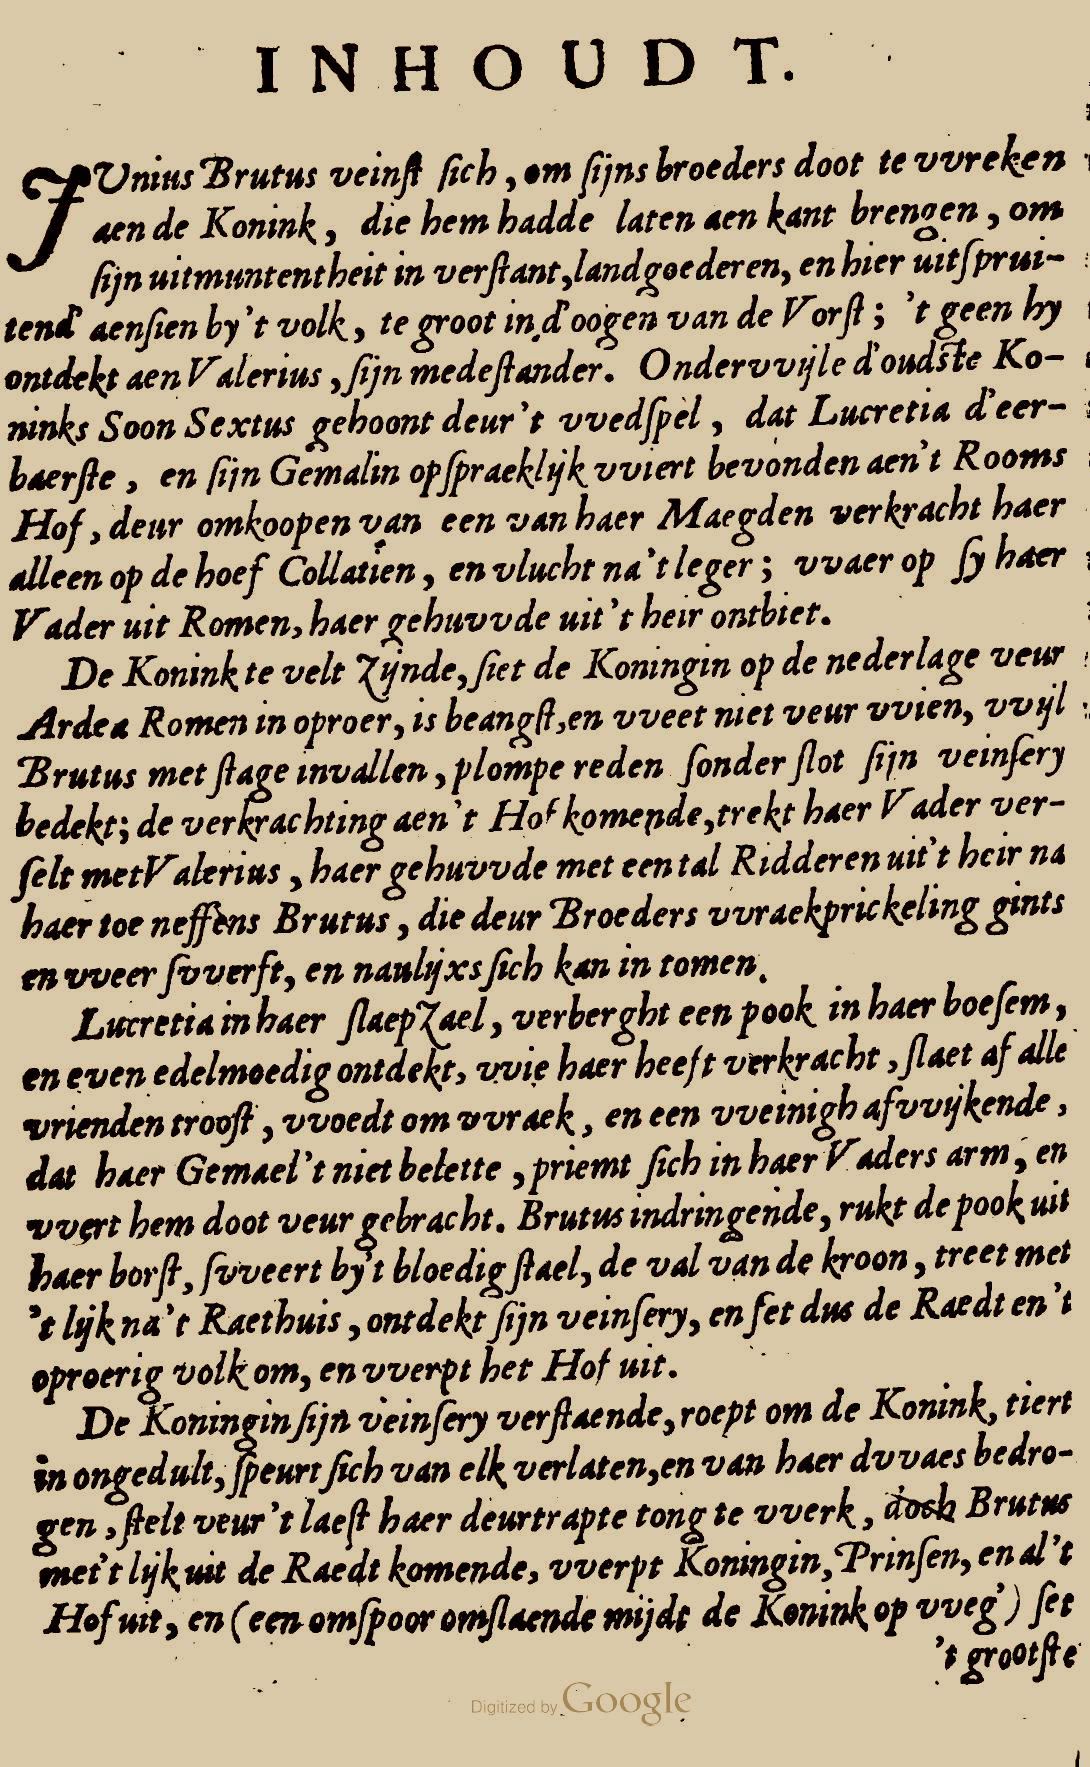 INHOUDT.
JUnius Brutus veinſt ſich, om ſijns broeders doot te vvreken
aen de Konink, die hem hadde laten aen kant brengen, om
ſijn uitmuntentheit in verſtant, landgoederen, en hier uitſprui-
tend' aenſien by 't volk, te groot in d'oogen van de Vorſt; 't geen hy
ontdekt aen Valerius, ſijn medeſtander. Ondervvijle d'oudſte Ko-
ninks Soon Sextus gehoont deur 't vvedſpel, dat Lucretia d'eer-
baerſte, en ſijn Gemalin opſpraeklijk vviert bevonden aen 't Rooms
Hof, deur omkoopen van een van haer Maegden verkracht haer
alleen op de hoef Collatien, en vlucht na 't leger; vvaer op ſy haer
Vader uit Romen, haer gehuvvde uit 't heir ontbiet.
De Konink te velt Zijnde, ſiet de Koningin op de nederlage veur
Ardea Romen in oproer, is beangſt, en vveet niet veur vvien, vvijl
Brutus met ſtage invallen, plompe reden ſonder ſlot ſijn veinſery
bedekt; de verkrachting aen 't Hof komende, trekt haer Vader ver-
ſelt met Valerius, haer gehuvvde met een tal Ridderen uit 't heir na
haer toe neffens Brutus, die deur Broeders vvraekprickeling gints
en vveer ſvverft, en naulijxs ſich kan in tomen.
Lucretia in haer ſlaepZael, verberght een pook in haer boeſem,
en even edelmoedig ontdekt, vvie haer heeft verkracht, ſlaet af alle
vrienden trooſt, vvoedt om vvraek, en een vveinigh afvvijkende,
dat haer Gemael 't niet belette, priemt ſich in haer Vaders arm, en
vvert hem doot veur gebracht. Brutus indringende, rukt de pook uit
haer borſt, ſvveert by 't bloedig ſtael, de val van de kroon, treet met
't lijk na 't Raethuis, ontdekt ſijn veinſery, en ſet dus de Raedt en 't
oproerig volk om, en vverpt het Hof uit.
De Koningin ſijn veinſery verſtaende, roept om de Konink, tiert
in ongedult, ſpeurt ſich van elk verlaten, en van haer dvvaes bedro-
gen, ſtelt veur 't laeſt haer deurtrapte tong te vverk, doch Brutus
met 't lijk uit de Raedt komende, vverpt Koningin, Prinſen, en al 't
Hof uit, en (een omſpoor omſlaende mijdt de Konink op vveg') ſet
't grootſte
Digitized by Google